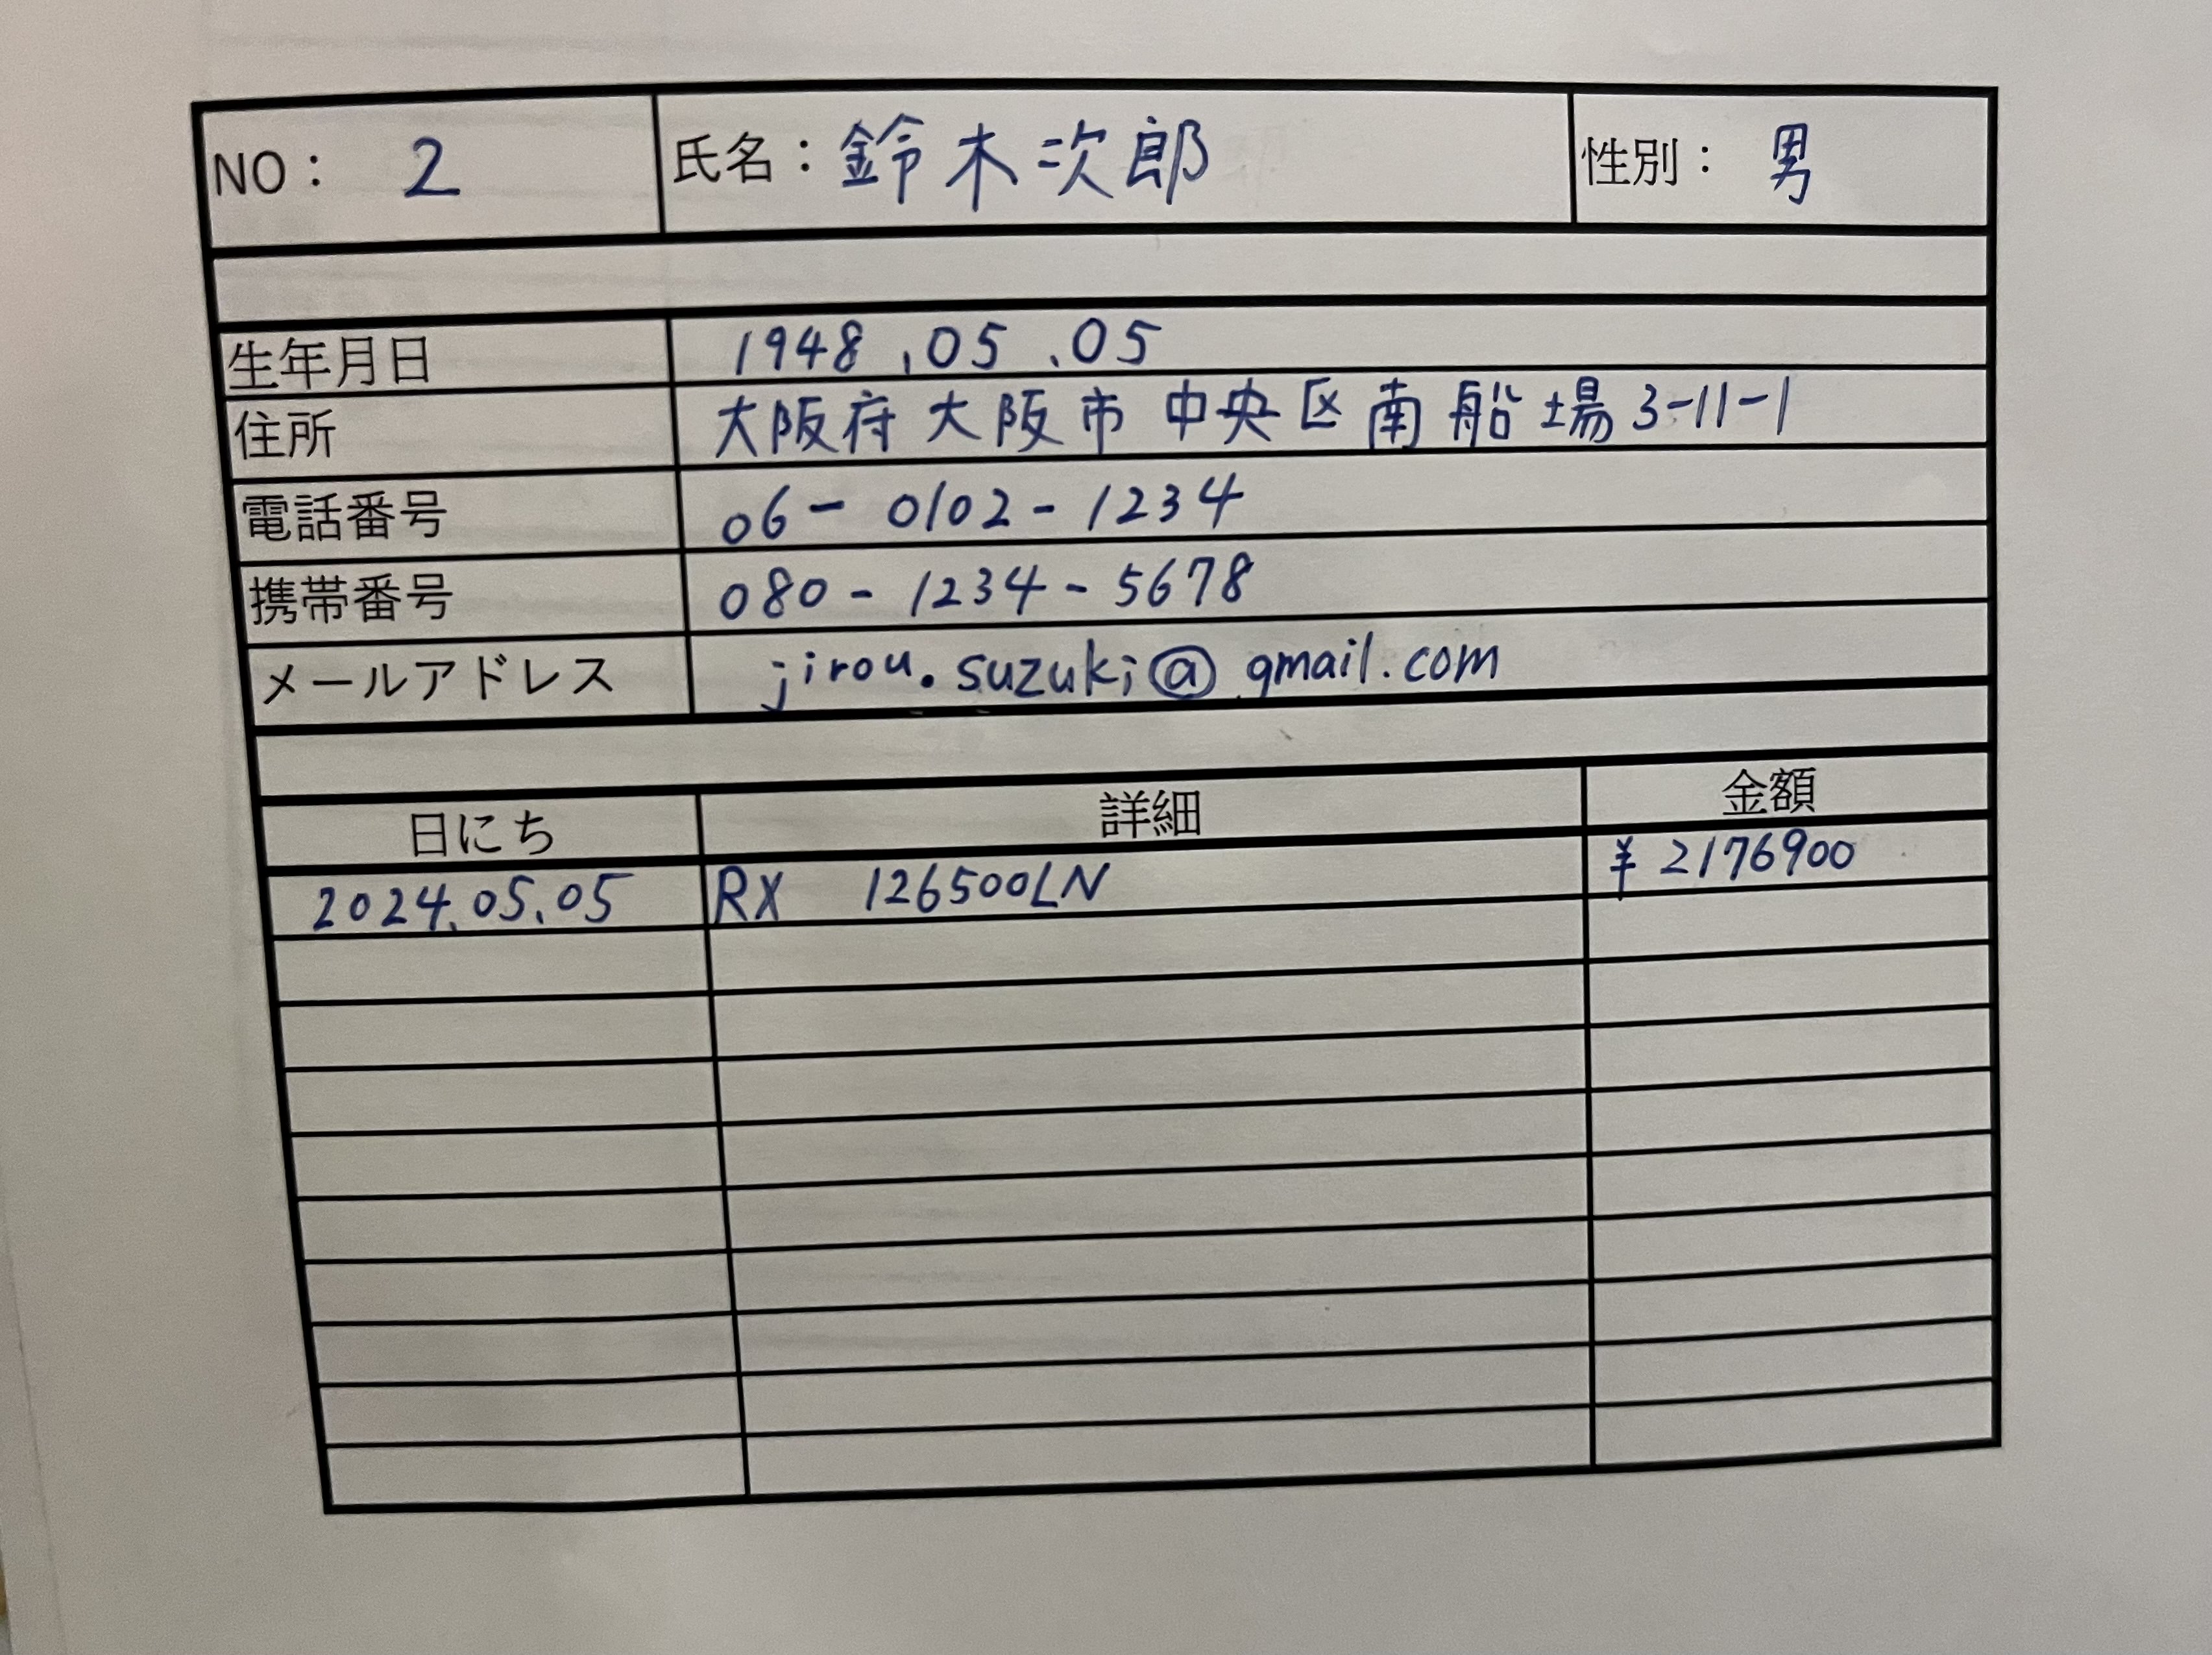 NO： 2 氏名：鈴木次郎 性別： 男
生年月日 1948.05.05
住所 大阪府大阪市中央区南船場3-11-1
電話番号 06-0102-1234
携帯番号 080-1234-5678
メールアドレス jirou.suzuki@gmail.com
日にち 詳細 金額
2024.05.05 RX 126500LN ¥2176900